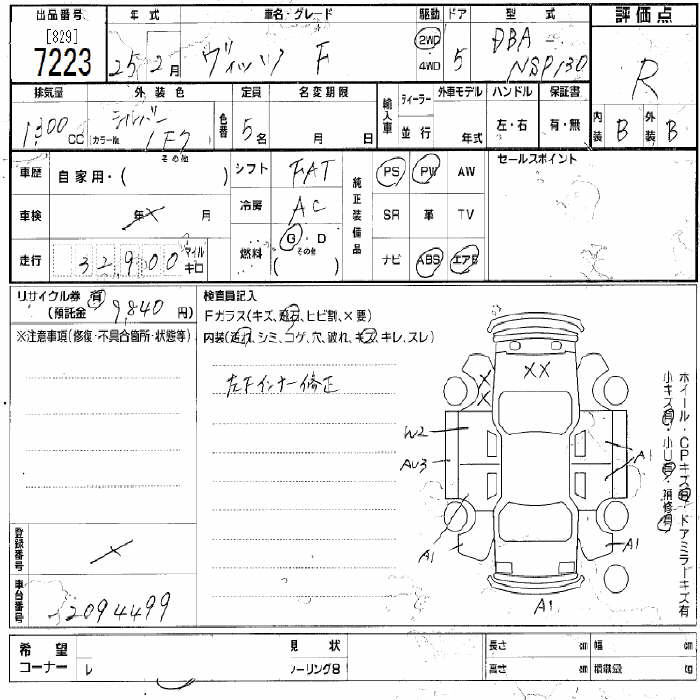 出品番号 年式 車名・グレード 駆動 ドア 型式 評価点
[829]
7223 25年2月 ヴィッツ F 2WD 4WD 5 DBA-NSP130 R
排気量 外装色 定員 名変期限 輸入車 ディーラー 外車モデル ハンドル 保証書 内装 B 外装 B
1300cc シルバー (カラーNo. 1F7 色番 5名 月 日 並行 年式 左・右 有・無
車歴 自家用・( その他 ) シフト FAT 純正装備品 PS PW AW セールスポイント
車検 年 × 月 冷房 AC SR 革 TV
走行 32,900 マイル キロ 燃料 G・D その他 ( ) ナビ ABS エアB
リサイクル券 有 (預託金 9,840 円) 検査員記入
Fガラス(キズ, 飛石, ヒビ割, ×要)
※注意事項(修復・不具合箇所・状態等) 内装(汚れ, シミ, コゲ, 穴, 破れ, キズ, キレ, スレ)
左Fインナー修正
XX
X
X
W2
AU3
A1
A1
A1
A1
ホイール・CPキズ有・ドアミラーキズ有
小キズ有・小U有・補修有
登録番号 ×
車台番号 2094499
希望 見状 長さ cm 幅 cm
コーナー レ ーリング8 高さ cm 積載量 kg